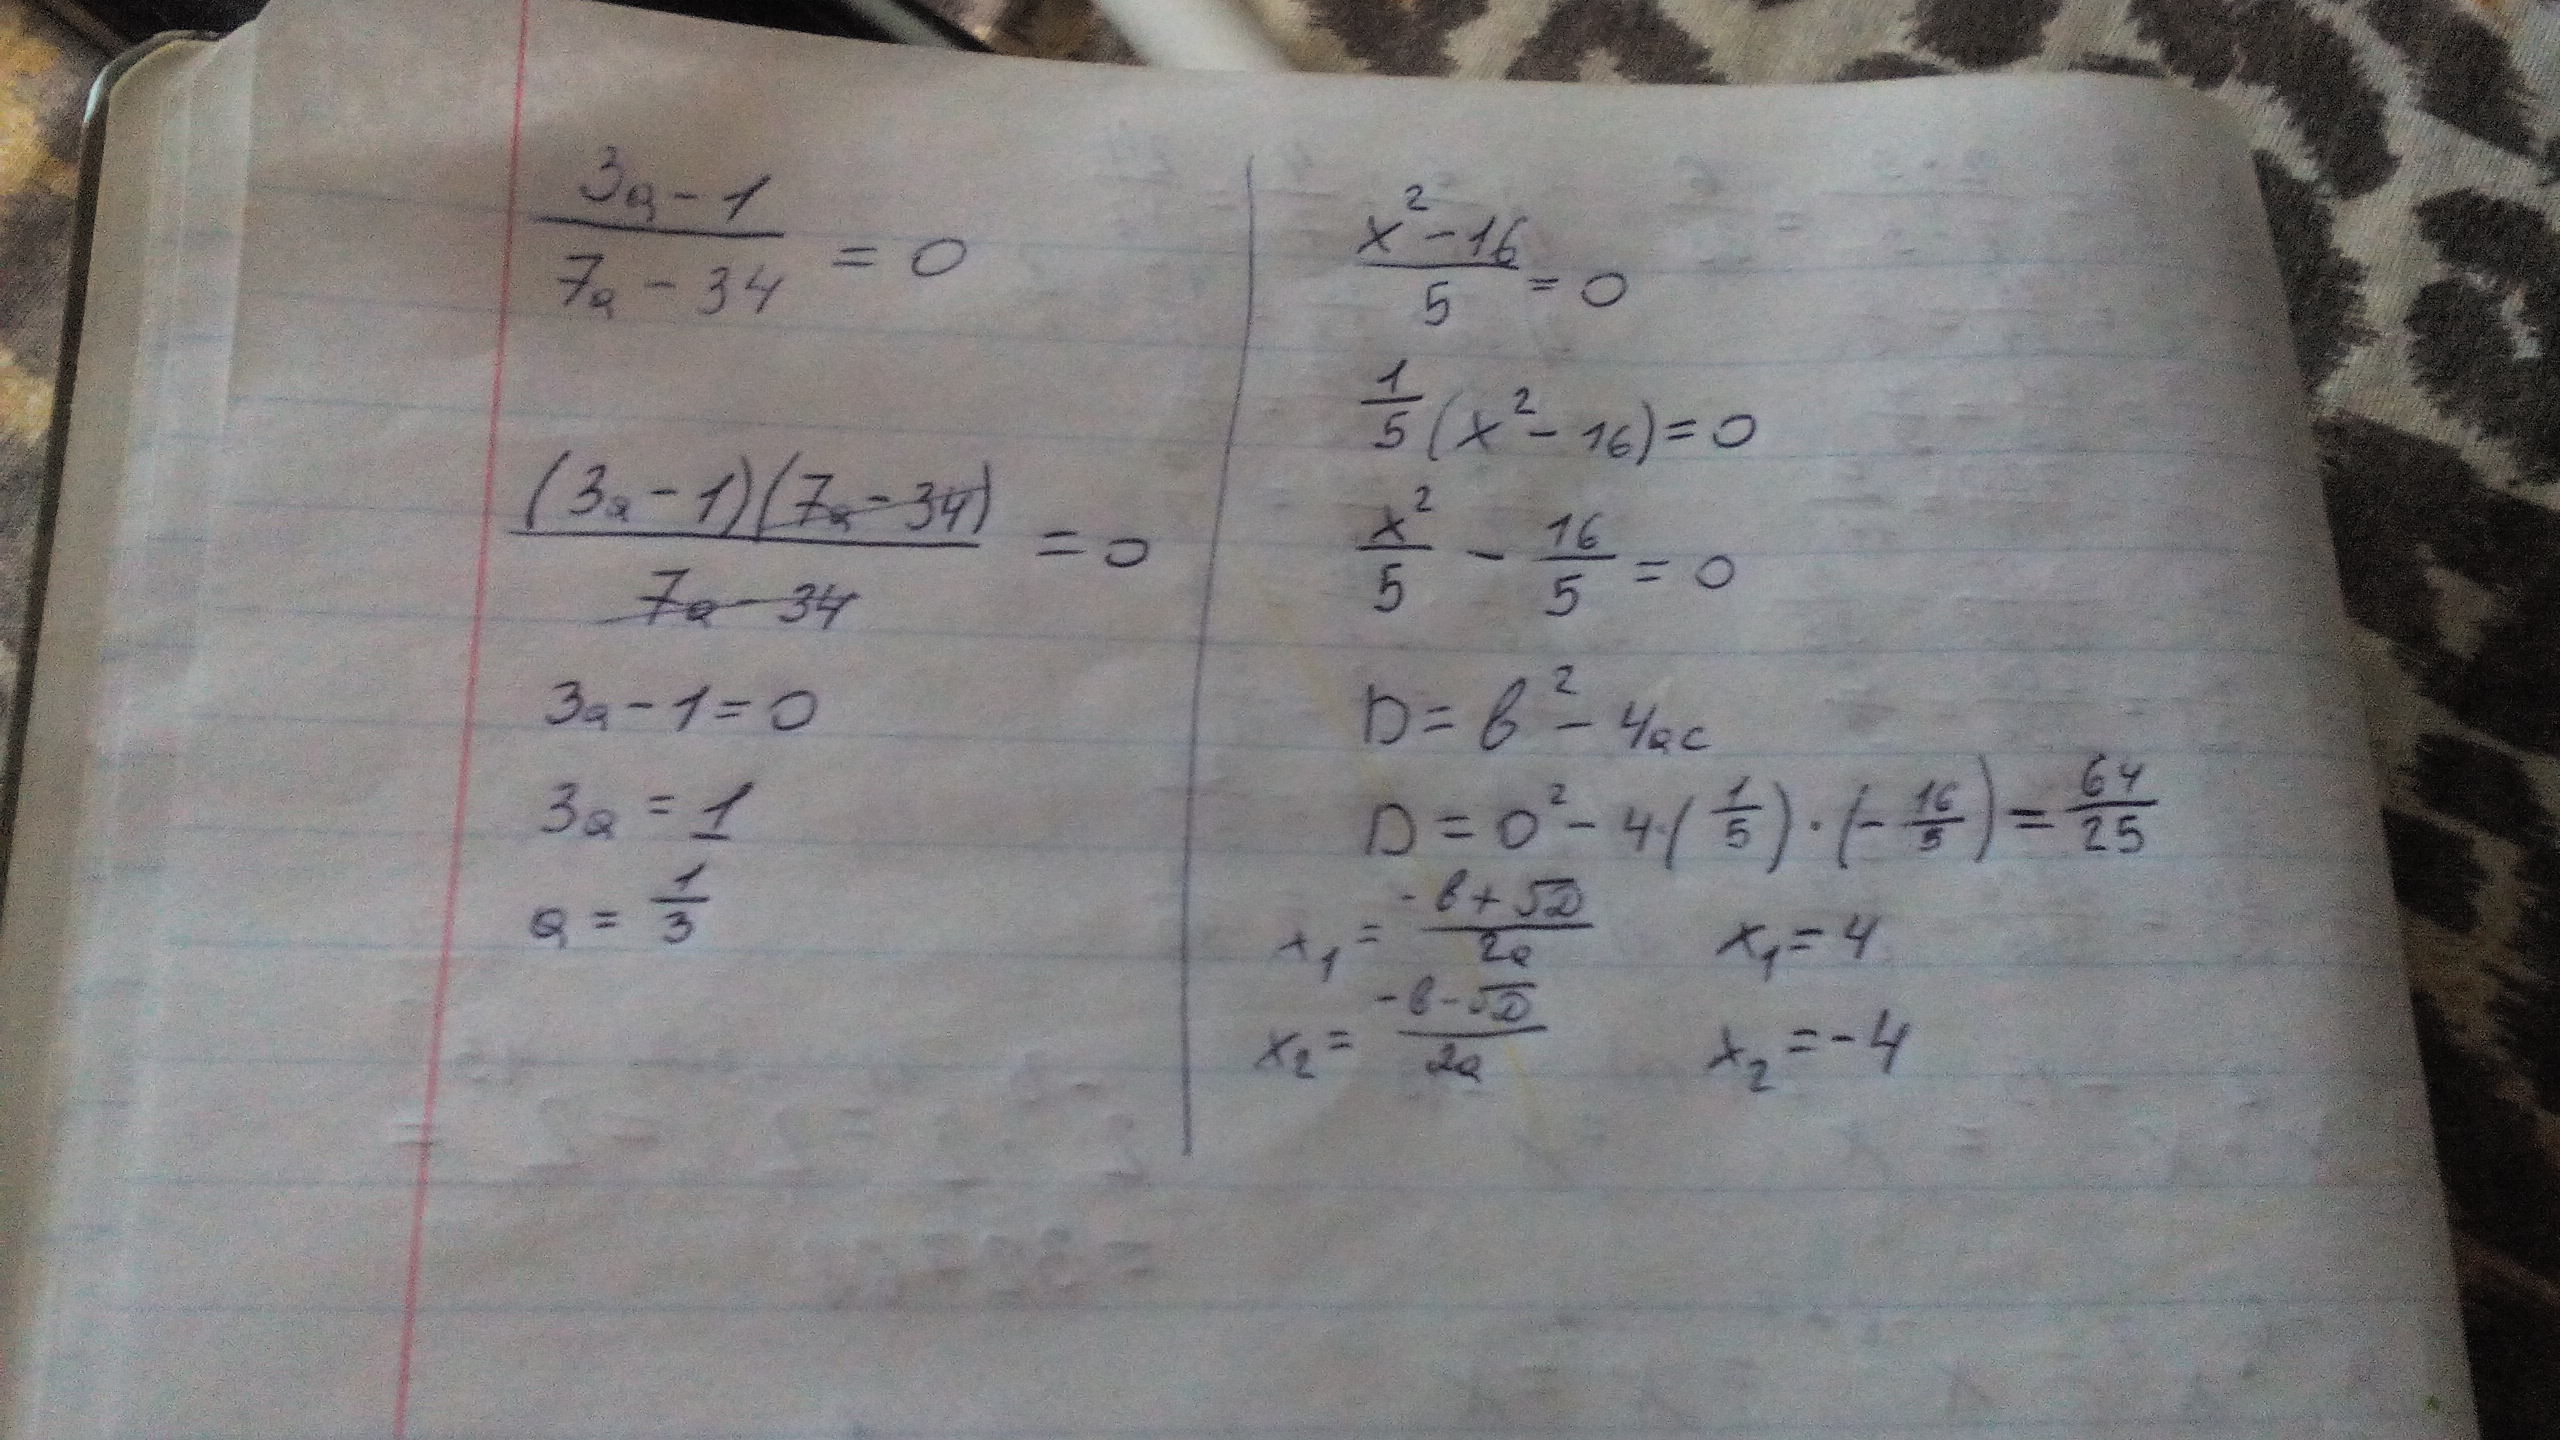 (3a - 1)/(7a - 34) = 0
((3a - 1)(7a - 34))/(7a - 34) = 0
3a - 1 = 0
3a = 1
a = 1/3
(x² - 16)/5 = 0
1/5 (x² - 16) = 0
x²/5 - 16/5 = 0
D = b² - 4ac
D = 0² - 4·(1/5)·(-16/5) = 64/25
x₁ = (-b + √D)/2a x₁ = 4
x₂ = (-b - √D)/2a x₂ = -4